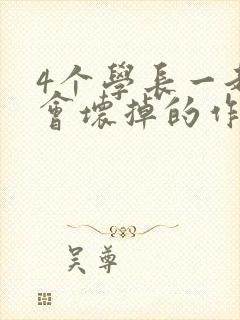 4个學長一
會壞掉的作
吴尊